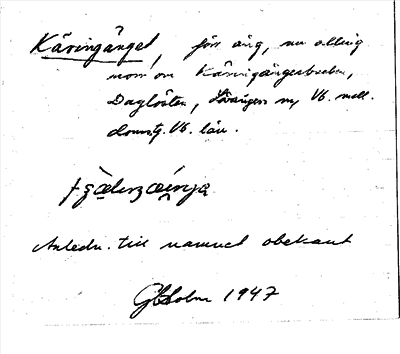 Käringänget, förr äng, nu odling
norr om Käringängesbacken,
Daglösten, Lövångers sn, Vb. mell.
domsg. Vb. län.
Anledn. till namnet obekant
G Holm 1947